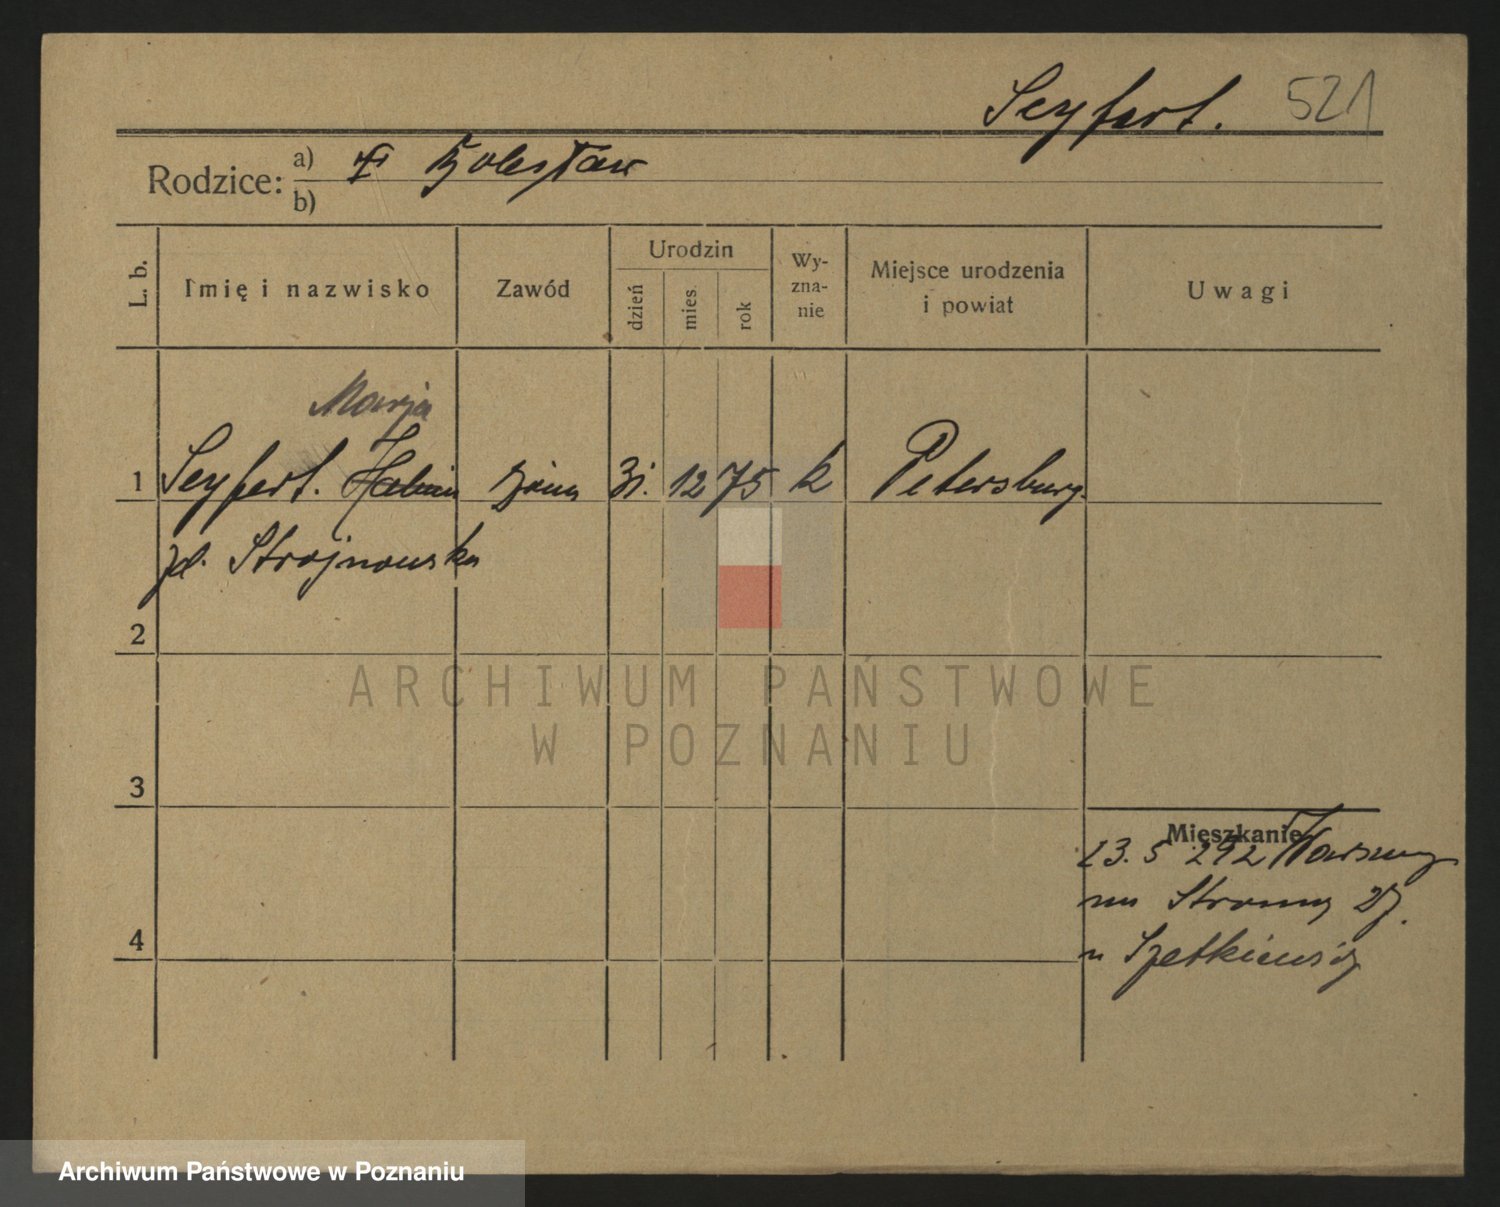 Seyfert. 521
Rodzice: a) Bolesław
b)
L. b. Imię i nazwisko Zawód Urodzin dzień mies. rok Wy-zna-nie Miejsce urodzenia i powiat Uwagi
Marja
1 Seyfert. Halina żona 31. 12 75 k Petersburg
zd. Strojnowska
2
ARCHIWUM PAŃSTWOWE
W POZNANIU
3
Mieszkanie
23. 5 292 Warszawy
na Stromy 27.
u
4
Archiwum Państwowe w Poznaniu